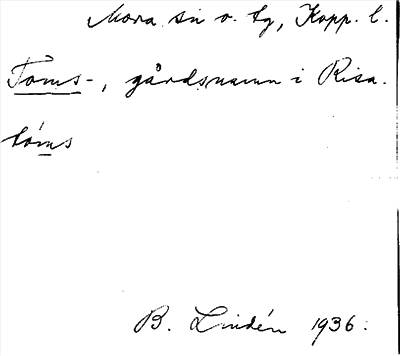 Mora sn o. tg, Kopp. l.
Toms-, gårdsnamn i Risa.
tóms
B. Lindén 1936.